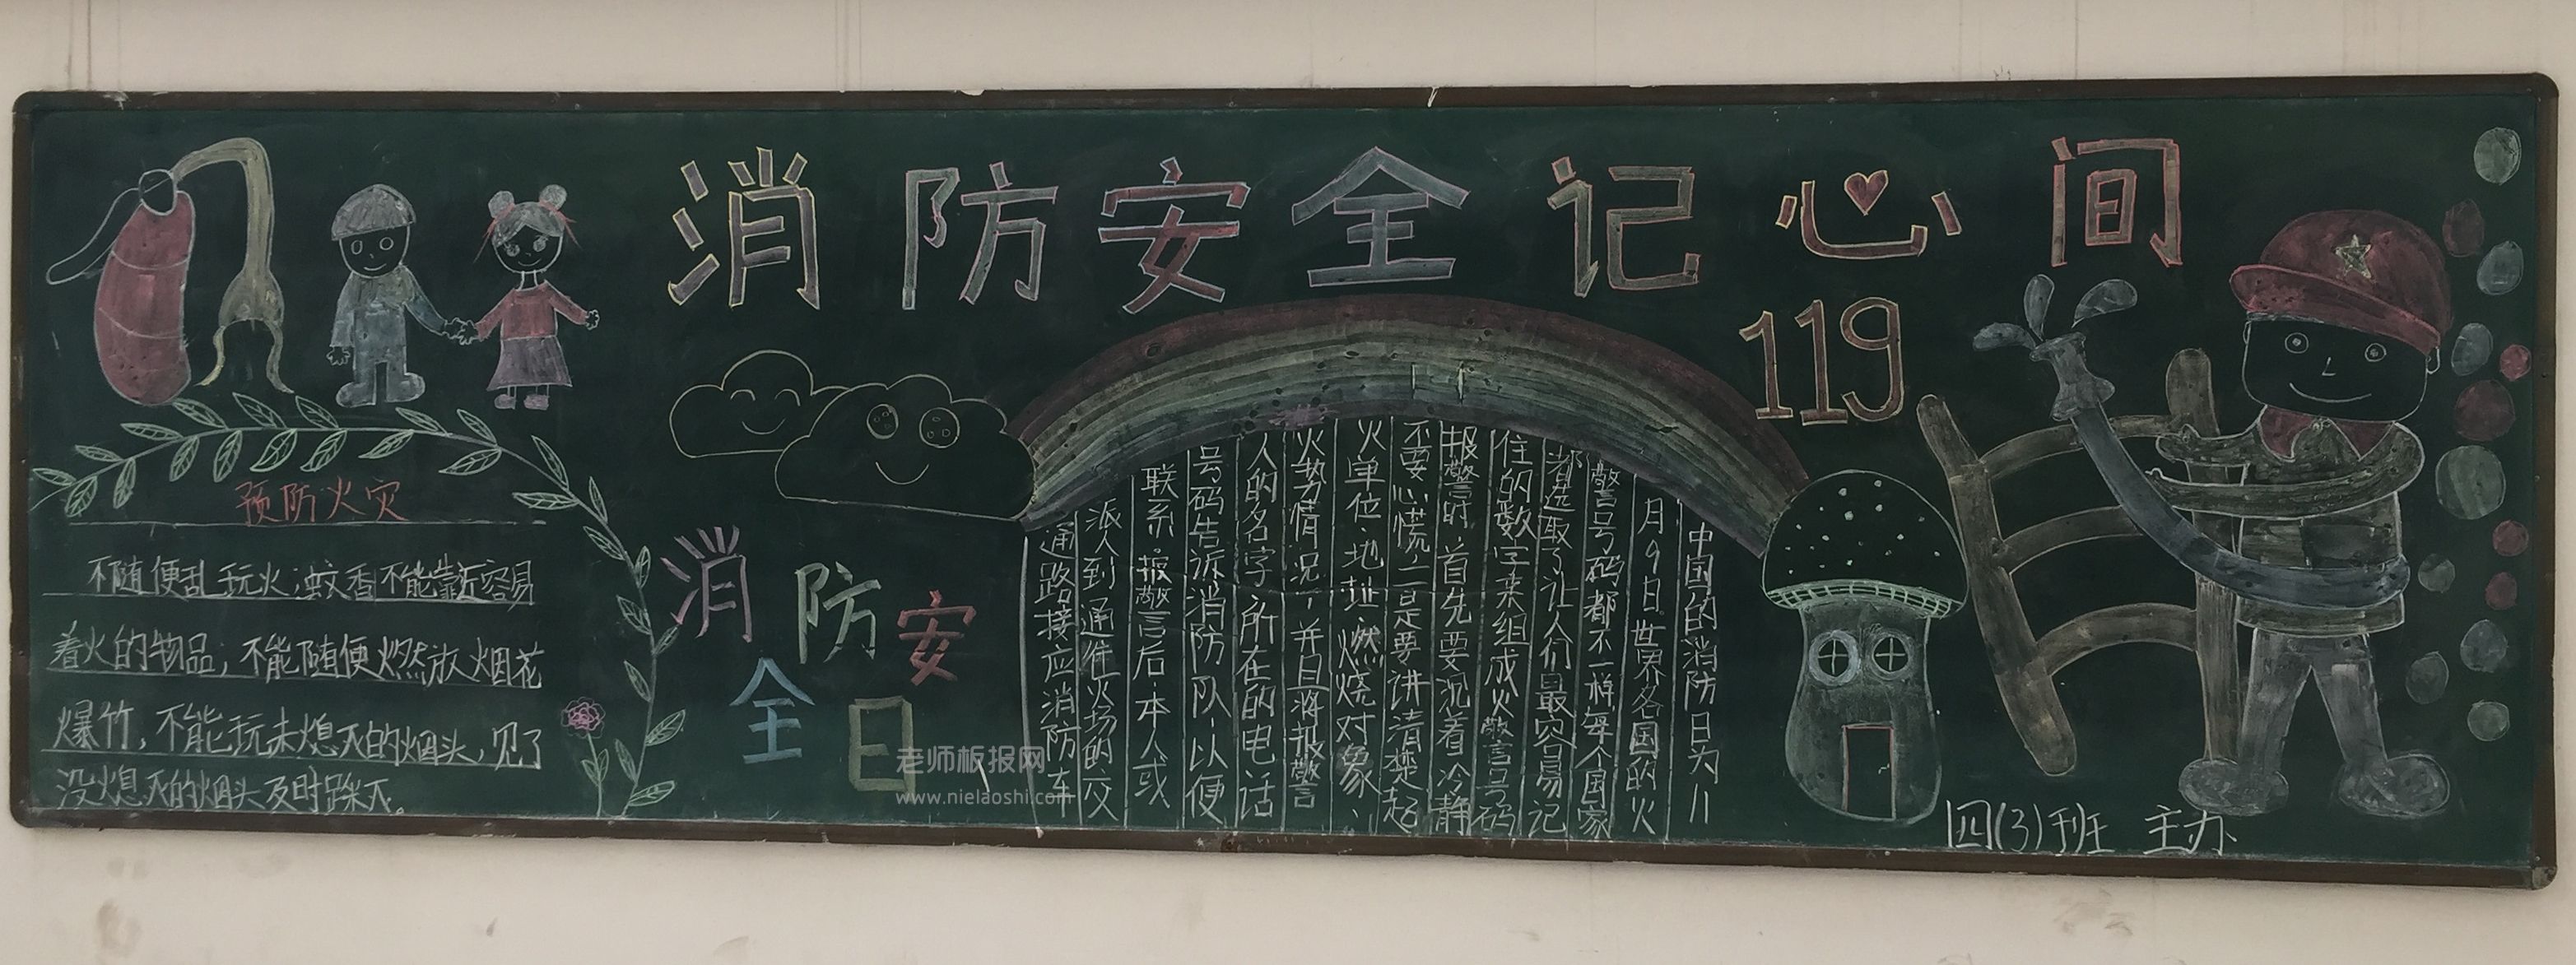 消防安全记心间
119
预防火灾
不随便乱玩火;蚊香不能靠近容易
着火的物品;不能随便燃放烟花
爆竹,不能玩未熄灭的烟头,见了
没熄灭的烟头及时踩灭。
消防安
全日
中国的消防日为11
月9日。世界各国的火
警号码都不一样每个国家
都选取了让人们最容易记
住的数字来组成火警号码
报警时,首先要沉着冷静
不要心慌,二是要讲清楚起
火单位、地址、燃烧对象、
火势情况,并且将报警
人的名字、所在的电话
号码告诉消防队,以便
联系。报警后,本人或
派人到通往火场的交
通路接应消防车
四(3)班 主办
老师板报网
www.nielaoshi.com